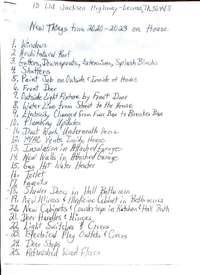 10 Old Jackson Highway-
New Things from 2020-2023 on House
1. Windows
2. Architectural Roof
3. Gutters, Downspouts, Extensions, Splash Blocks
4. Shutters
5. Paint Job on Outside & Inside of House
6. Front Door
7. Outside Light Fixture by Front Door
8. Water Line from Street to the House
9. Electricity Changed from Fuse Box to Breaker Box
10. Plumbing Updates
11. Duct Work Underneath House
12. HVAC Vents Inside House
13. Insulation in Attached Garage
14. New Walls in Attached Garage
15. Gas Hot Water Heater
16. Toilet
17. Faucets
18. Shower Doors in Hall Bathroom
19. New Mirrors & Medicine Cabinet in Bathrooms
20. New Cabinets & Countertops in Kitchen & Hall Bath
21. Door Handles & Hinges
22. Light Switches & Covers
23. Electrical Plug Outlets & Covers
24. Door Stops
25. Refinished Wood Floors